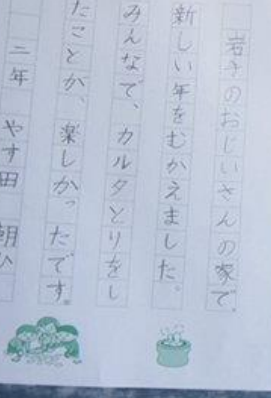 岩手のおじいさんの家で、
新しい年をむかえました。
みんなで、カルタとりをし
たことが、楽しかったです。
二年 やす田 朝